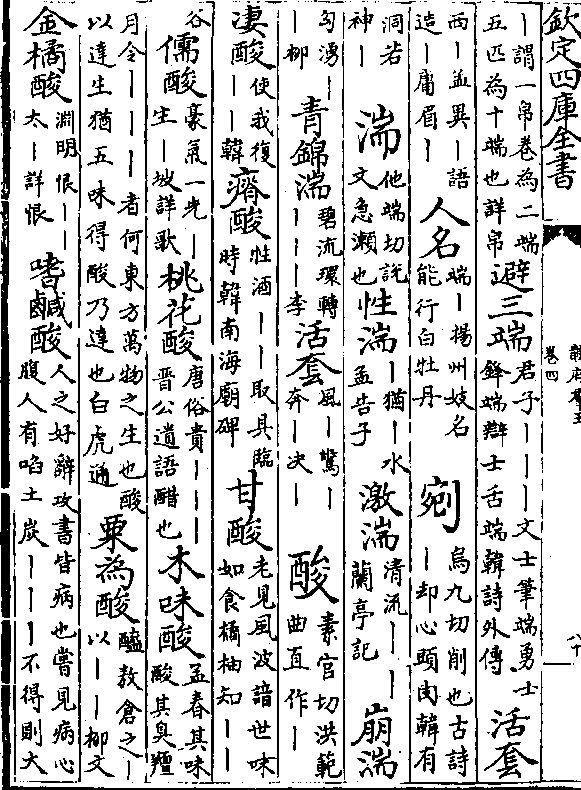 欽定四庫全書
韻府群玉
卷四
八十
丨謂一帛卷為二端
五匹為十端也詳帛
避三端
君子丨丨丨文士筆端勇士
鋒端辯士舌端韓詩外傳
活套
西丨孟異丨語
造丨庸眉丨
人名
端丨揚州妓名
能行白牡丹
剜
烏九切削也古詩
丨却心頭肉韓有
洞若
神丨
湍
他端切説
文急瀬也
性湍
丨猶丨水
孟告子
激湍
清流丨丨
蘭亭記
崩湍
匈湧丨
丨柳
青錦湍
碧流環轉
丨丨丨李
活套
風丨驚丨
奔丨决丨
酸
素官切洪範
曲直作丨
凄酸
使我復
丨丨韓
齊酸
性酒丨丨取具臨
時韓南海廟碑
甘酸
老見風波諳世味
如食橘柚知丨丨
谷
儒酸
豪氣一洗丨
生丨坡詳歌
桃花酸
唐俗貴丨丨丨
晋公遺語醋也
木味酸
孟春其味
酸其臭羶
月令丨丨丨者何東方萬物之生也酸
以達生猶五味得酸乃達也白虎通
粟為酸
醯敖倉之丨
以丨丨柳文
金橘酸
淵明恨丨丨
太丨詳恨
嗜鹹酸
人之好辭攻書皆病也嘗見病心
腹人有啗土炭丨丨丨不得則大